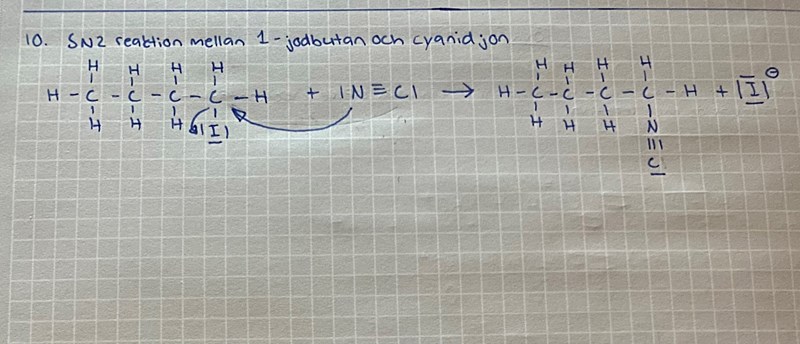 10. SN2 reaktion mellan 1-jodbutan och cyanidjon
H H H H H H H H
H - C - C - C - C - H + |N≡C| → H - C - C - C - C - H + |I|⊖
H H H |I| H H H N
|||
C